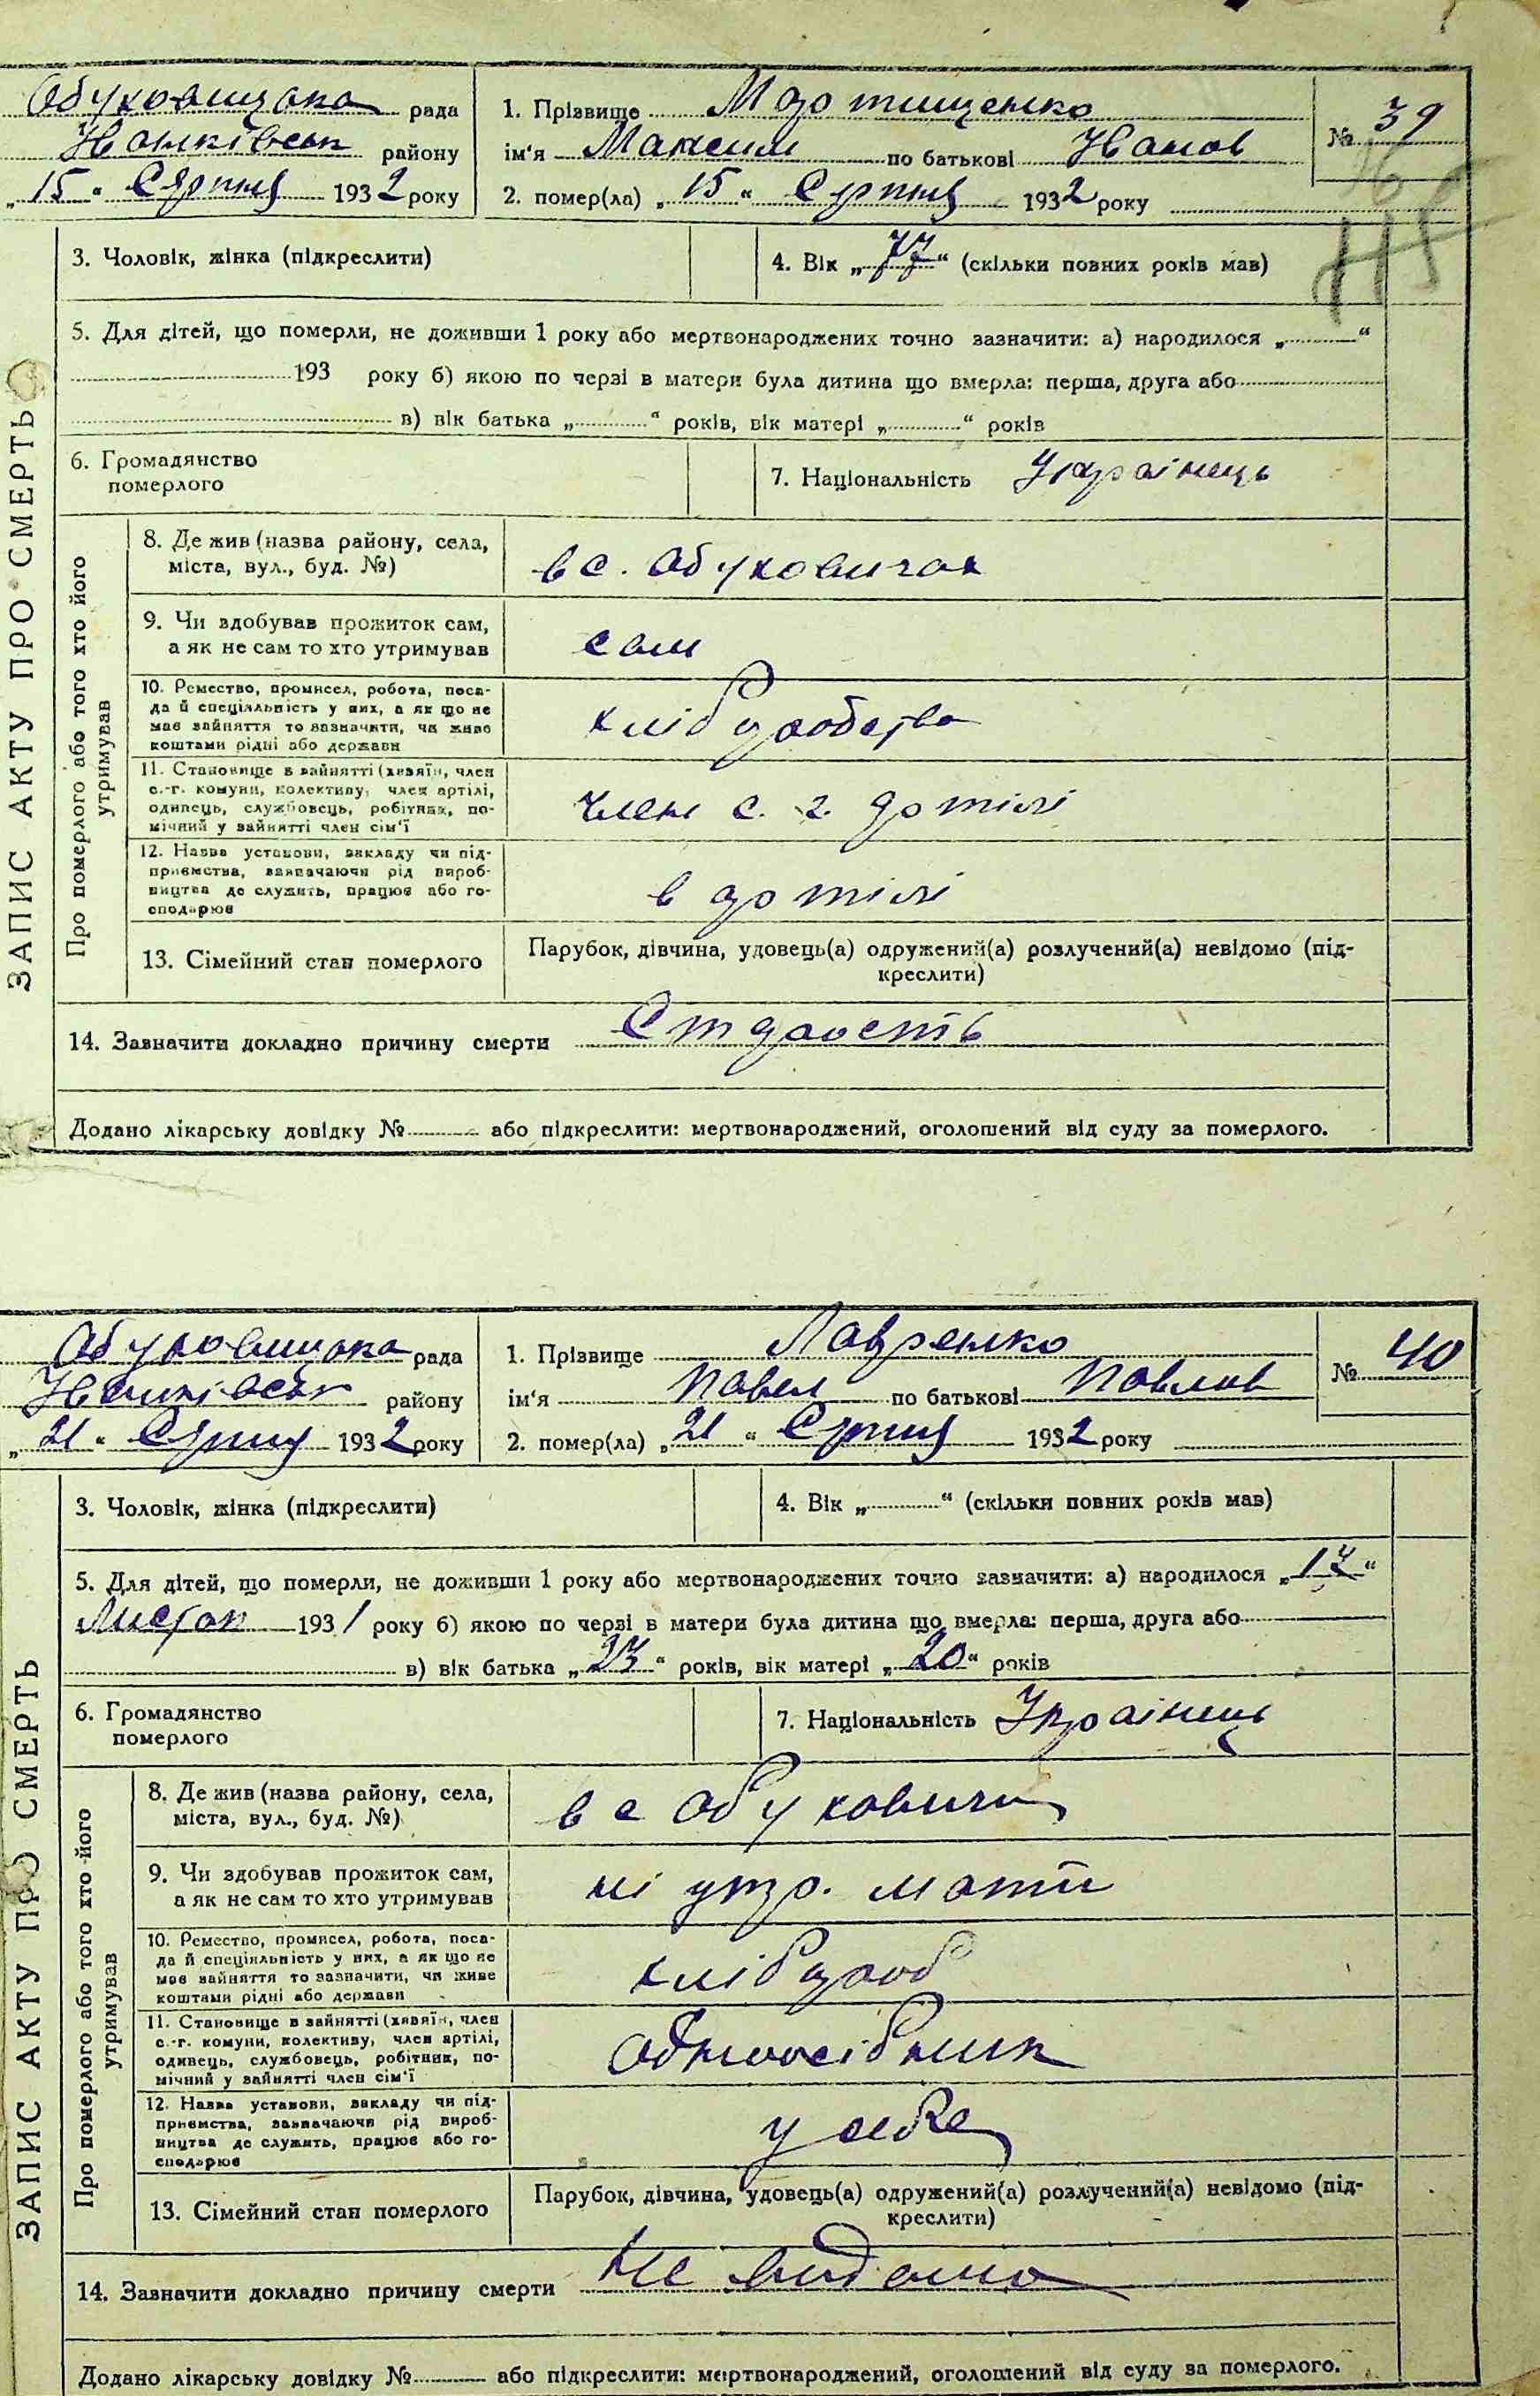 Обуховицька рада
Іванківськ району
„15“ Серпня 1932 року
1. Прізвище Мартищенко
ім'я Максим по батькові Іванов
2. помер(ла) „15“ Серпня 1932 року
№ 39
3. Чоловік, жінка (підкреслити)
4. Вік „77“ (скільки повних років мав)
5. Для дітей, що померли, не доживши 1 року або мертвонароджених точно зазначити: а) народилося „ “
193 року б) якою по черзі в матери була дитина що вмерла: перша, друга або
в) вік батька „ “ років, вік матері „ “ років
6. Громадянство
померлого
7. Національність Українець
ЗАПИС АКТУ ПРО СМЕРТЬ
Про померлого або того хто його
утримував
8. Де жив (назва району, села,
міста, вул., буд. №)
в с. Обуховичах
9. Чи здобував прожиток сам,
а як не сам то хто утримував
сам
10. Ремество, промисел, робота, поса-
да й спеціяльність у них, а як що не
мав зайняття то зазначити, чи живе
коштами рідні або держави
хліборобство
11. Становище в зайнятті (хазяїн, член
с.-г. комуни, колективу, член артілі,
одинець, службовець, робітник, по-
мічний у зайнятті член сім'ї
член с. г. артілі
12. Назва установи, закладу чи під-
приємства, зазначаючи рід вироб-
ництва де служить, працює або го-
сподарює
в артілі
13. Сімейний стан померлого
Парубок, дівчина, удовець(а) одружений(а) розлучений(а) невідомо (під-
креслити)
14. Зазначити докладно причину смерти Старость
Додано лікарську довідку № або підкреслити: мертвонароджений, оголошений від суду за померлого.
Обуховицька рада
Іванківськ району
„21“ Серпня 1932 року
1. Прізвище Лавренко
ім'я Павел по батькові Павлов
2. помер(ла) „21“ Серпня 1932 року
№ 40
3. Чоловік, жінка (підкреслити)
4. Вік „ “ (скільки повних років мав)
5. Для дітей, що померли, не доживши 1 року або мертвонароджених точно зазначити: а) народилося „17“
Листоп 1931 року б) якою по черзі в матери була дитина що вмерла: перша, друга або
в) вік батька „23“ років, вік матері „20“ років
6. Громадянство
померлого
7. Національність Українець
ЗАПИС АКТУ ПРО СМЕРТЬ
Про померлого або того хто його
утримував
8. Де жив (назва району, села,
міста, вул., буд. №)
в с Обуховичи
9. Чи здобував прожиток сам,
а як не сам то хто утримував
ні утр. мати
10. Ремество, промисел, робота, поса-
да й спеціяльність у них, а як що не
мав зайняття то зазначити, чи живе
коштами рідні або держави
хлібороб
11. Становище в зайнятті (хазяїн, член
с.-г. комуни, колективу, член артілі,
одинець, службовець, робітник, по-
мічний у зайнятті член сім'ї
Одноосібник
12. Назва установи, закладу чи під-
приємства, зазначаючи рід вироб-
ництва де служить, працює або го-
сподарює
у себе
13. Сімейний стан померлого
Парубок, дівчина, удовець(а) одружений(а) розлучений(а) невідомо (під-
креслити)
14. Зазначити докладно причину смерти Не видомо
Додано лікарську довідку № або підкреслити: мертвонароджений, оголошений від суду за померлого.